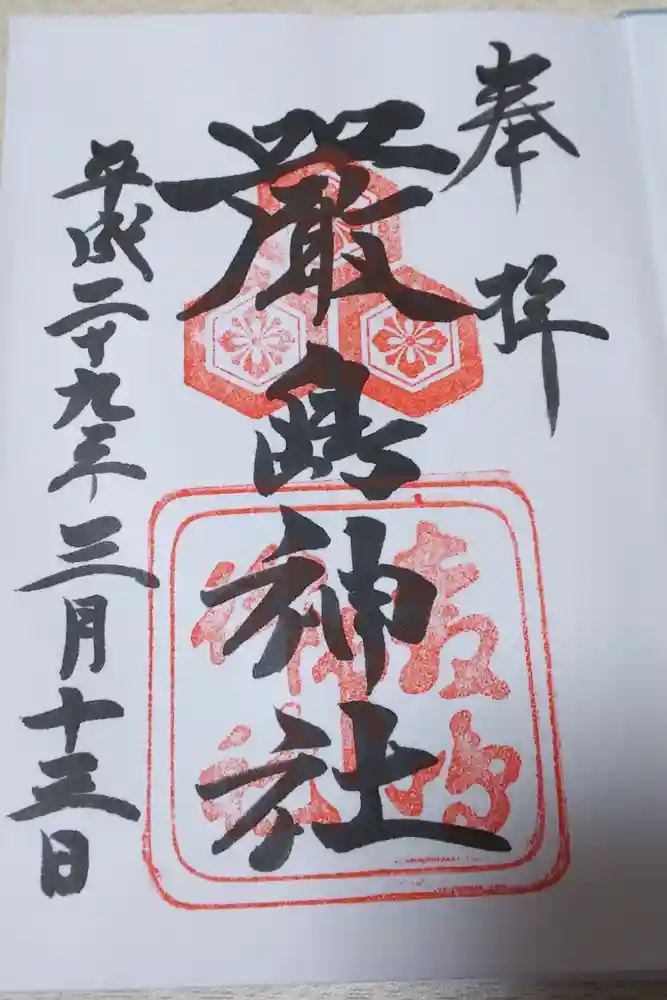 奉拝
厳島神社
平成二十九年三月十三日